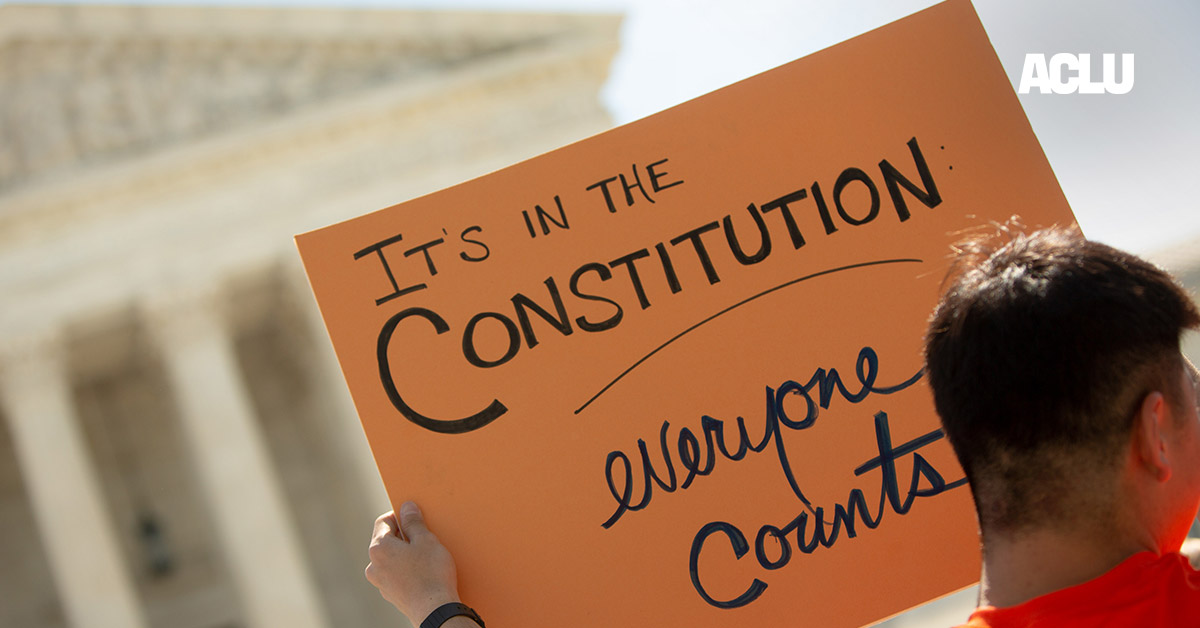 ACLU
IT'S IN THE
CONSTITUTION:
everyone
Counts